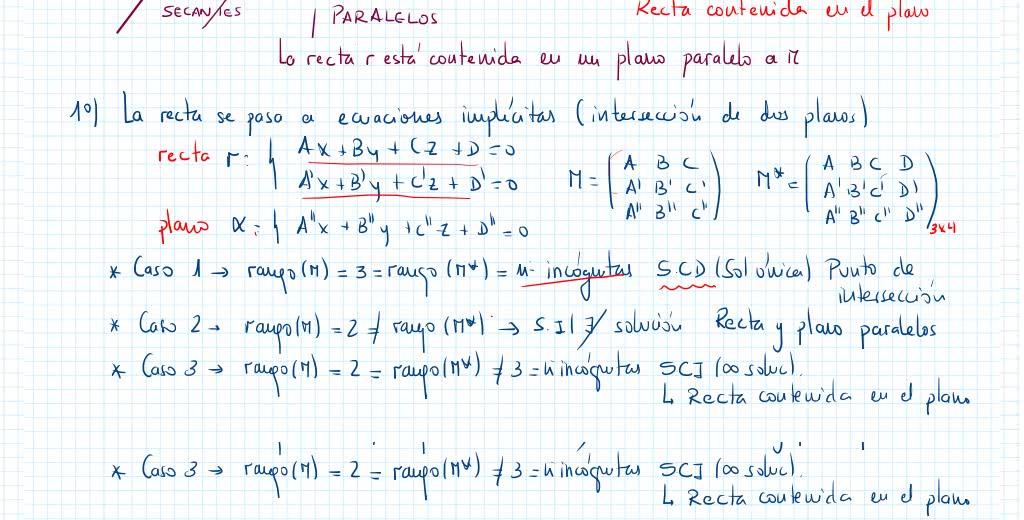 SECANTES PARALELOS Recta contenida en el plano
La recta r está contenida en un plano paralelo a π
1º) La recta se pasa a ecuaciones implícitas (intersección de dos planos)
recta r: { Ax + By + Cz + D = 0
A'x + B'y + C'z + D' = 0
M = ( A B C
A' B' C'
A'' B'' C'' )
M* = ( A B C D
A' B' C' D'
A'' B'' C'' D'' ) 3x4
plano α: { A''x + B''y + C''z + D'' = 0
* Caso 1 → rango(M) = 3 = rango(M*) = nº incógnitas S.C.D (Sol única) Punto de
intersección
* Caso 2 → rango(M) = 2 ≠ rango(M*) → S.I | ∄ solución Recta y plano paralelos
* Caso 3 → rango(M) = 2 = rango(M*) ≠ 3 = n incógnitas SCI (∞ soluc).
↳ Recta contenida en el plano
* Caso 3 → rango(M) = 2 = rango(M*) ≠ 3 = n incógnitas SCI (∞ soluc).
↳ Recta contenida en el plano